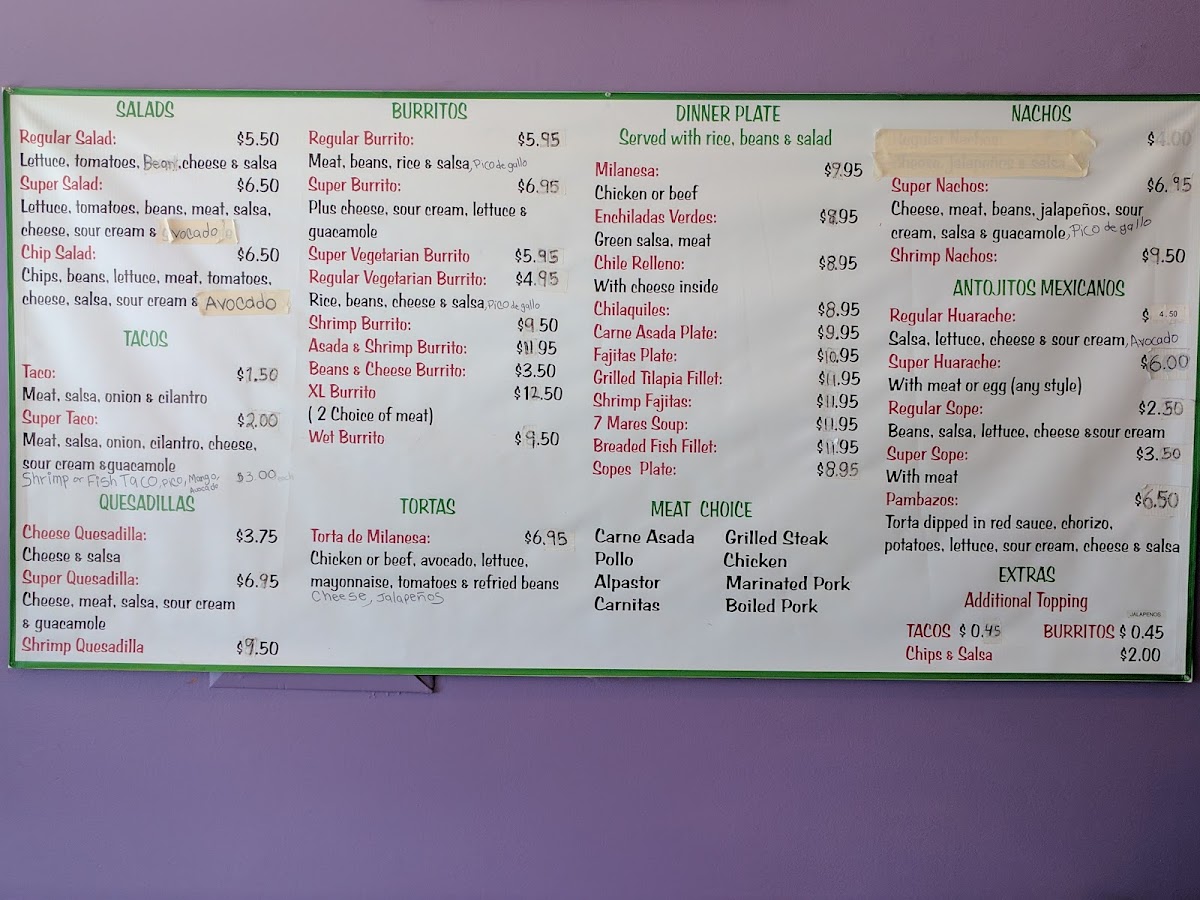 SALADS
Regular Salad: $5.50
Lettuce, tomatoes, Bean, cheese & salsa
Super Salad: $6.50
Lettuce, tomatoes, beans, meat, salsa,
cheese, sour cream & Avocado
Chip Salad: $6.50
Chips, beans, lettuce, meat, tomatoes,
cheese, salsa, sour cream & Avocado
TACOS
Taco: $1.50
Meat, salsa, onion & cilantro
Super Taco: $2.00
Meat, salsa, onion, cilantro, cheese,
sour cream &guacamole
Shrimp or Fish Taco, Pico, Mango, Avocado $3.00 each
QUESADILLAS
Cheese Quesadilla: $3.75
Cheese & salsa
Super Quesadilla: $6.95
Cheese, meat, salsa, sour cream
& guacamole
Shrimp Quesadilla $9.50
BURRITOS
Regular Burrito: $5.95
Meat, beans, rice & salsa, Pico de gallo
Super Burrito: $6.95
Plus cheese, sour cream, lettuce &
guacamole
Super Vegetarian Burrito $5.95
Regular Vegetarian Burrito: $4.95
Rice, beans, cheese & salsa, Pico de gallo
Shrimp Burrito: $9.50
Asada & Shrimp Burrito: $11.95
Beans & Cheese Burrito: $3.50
XL Burrito $12.50
( 2 Choice of meat)
Wet Burrito $9.50
TORTAS
Torta de Milanesa: $6.95
Chicken or beef, avocado, lettuce,
mayonnaise, tomatoes & refried beans
Cheese, Jalapeños
DINNER PLATE
Served with rice, beans & salad
Milanesa: $9.95
Chicken or beef
Enchiladas Verdes: $8.95
Green salsa, meat
Chile Relleno: $8.95
With cheese inside
Chilaquiles: $8.95
Carne Asada Plate: $9.95
Fajitas Plate: $10.95
Grilled Tilapia Fillet: $11.95
Shrimp Fajitas: $11.95
7 Mares Soup: $11.95
Breaded Fish Fillet: $11.95
Sopes Plate: $8.95
MEAT CHOICE
Carne Asada Grilled Steak
Pollo Chicken
Alpastor Marinated Pork
Carnitas Boiled Pork
NACHOS
$4.00
Super Nachos: $6.95
Cheese, meat, beans, jalapeños, sour
cream, salsa & guacamole, Pico de gallo
Shrimp Nachos: $9.50
ANTOJITOS MEXICANOS
Regular Huarache: $ 4.50
Salsa, lettuce, cheese & sour cream, Avocado
Super Huarache: $6.00
With meat or egg (any style)
Regular Sope: $2.50
Beans, salsa, lettuce, cheese &sour cream
Super Sope: $3.50
With meat
Pambazos: $6.50
Torta dipped in red sauce, chorizo,
potatoes, lettuce, sour cream, cheese & salsa
EXTRAS
Additional Topping
JALAPEÑOS
TACOS $ 0.45 BURRITOS $ 0.45
Chips & Salsa $2.00